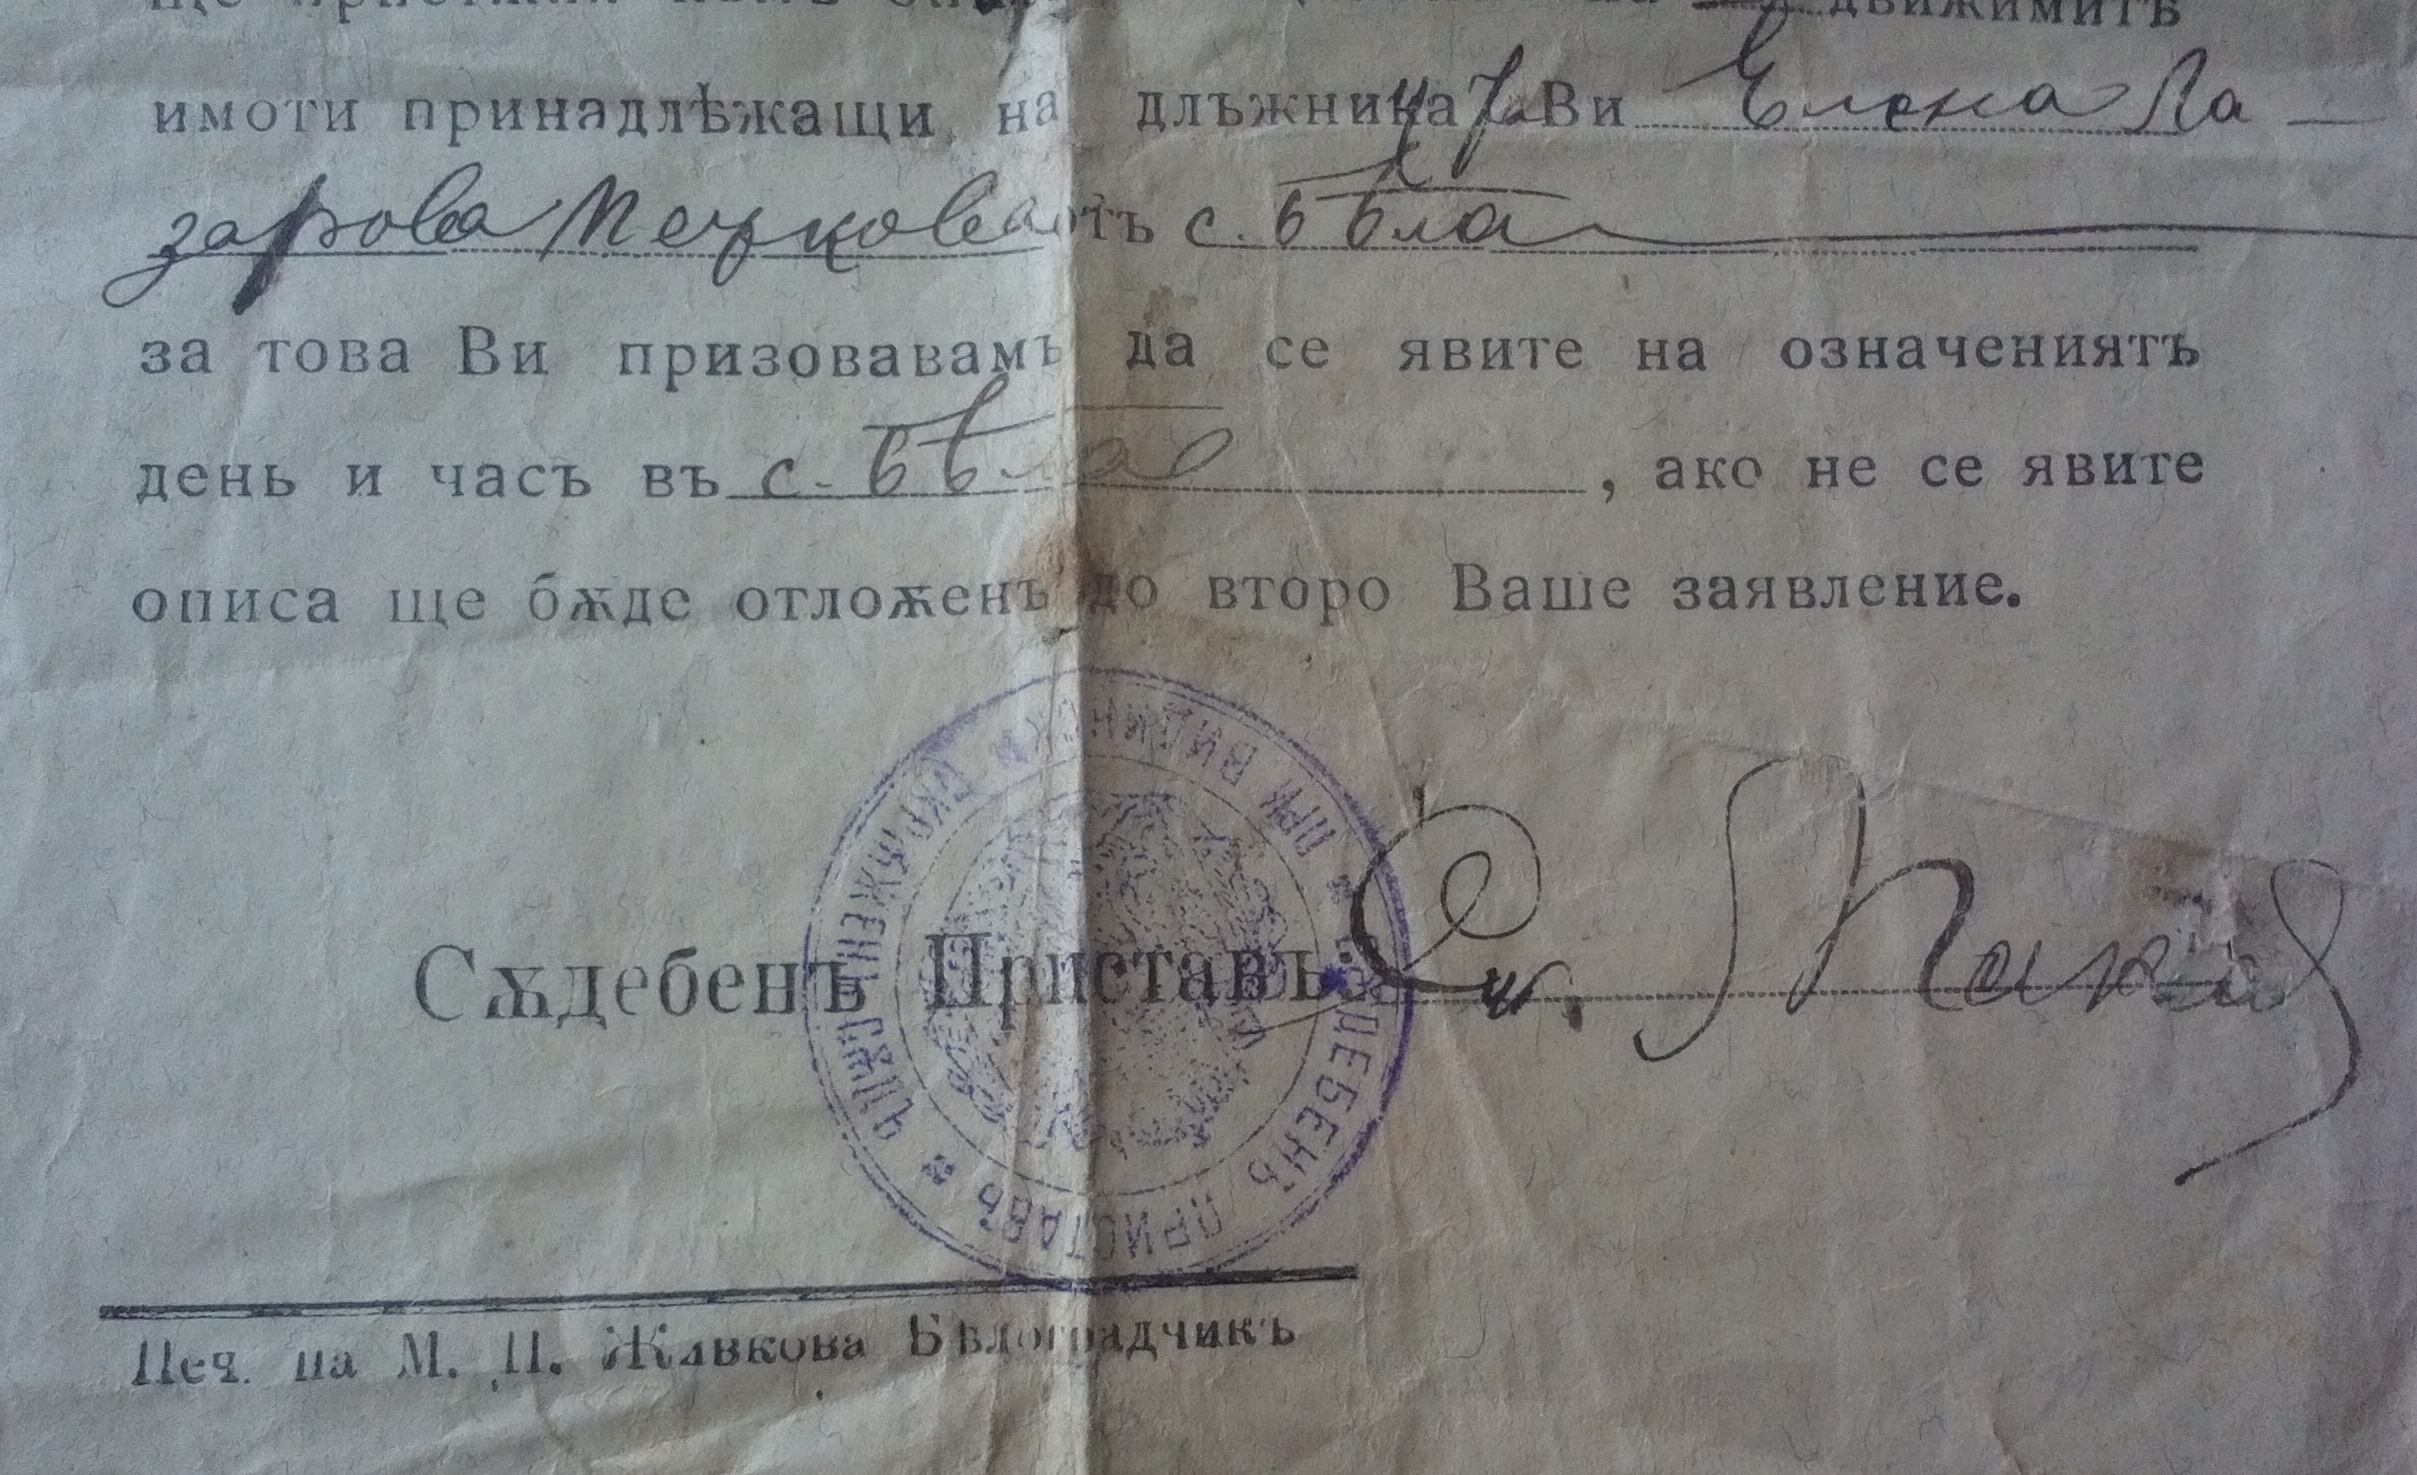 ще движимитѣ
имоти принадлѣжащи на длъжника Ви Елена Ла—
зарова Пецкова отъ с. Бѣла
за това Ви призовавамъ да се явите на означениятъ
день и часъ въ с. Бѣла, ако не се явите
описа ще бѫде отложенъ до второ Ваше заявление.
Сѫдебенъ Приставъ:
СѪДЕБЕНЪ ПРИСТАВЪ * ПРИ ВИДИНСКИЯ ОКРѪЖЕНЪ СѪДЪ *
Печ. на М. П. Живкова Бѣлоградчикъ